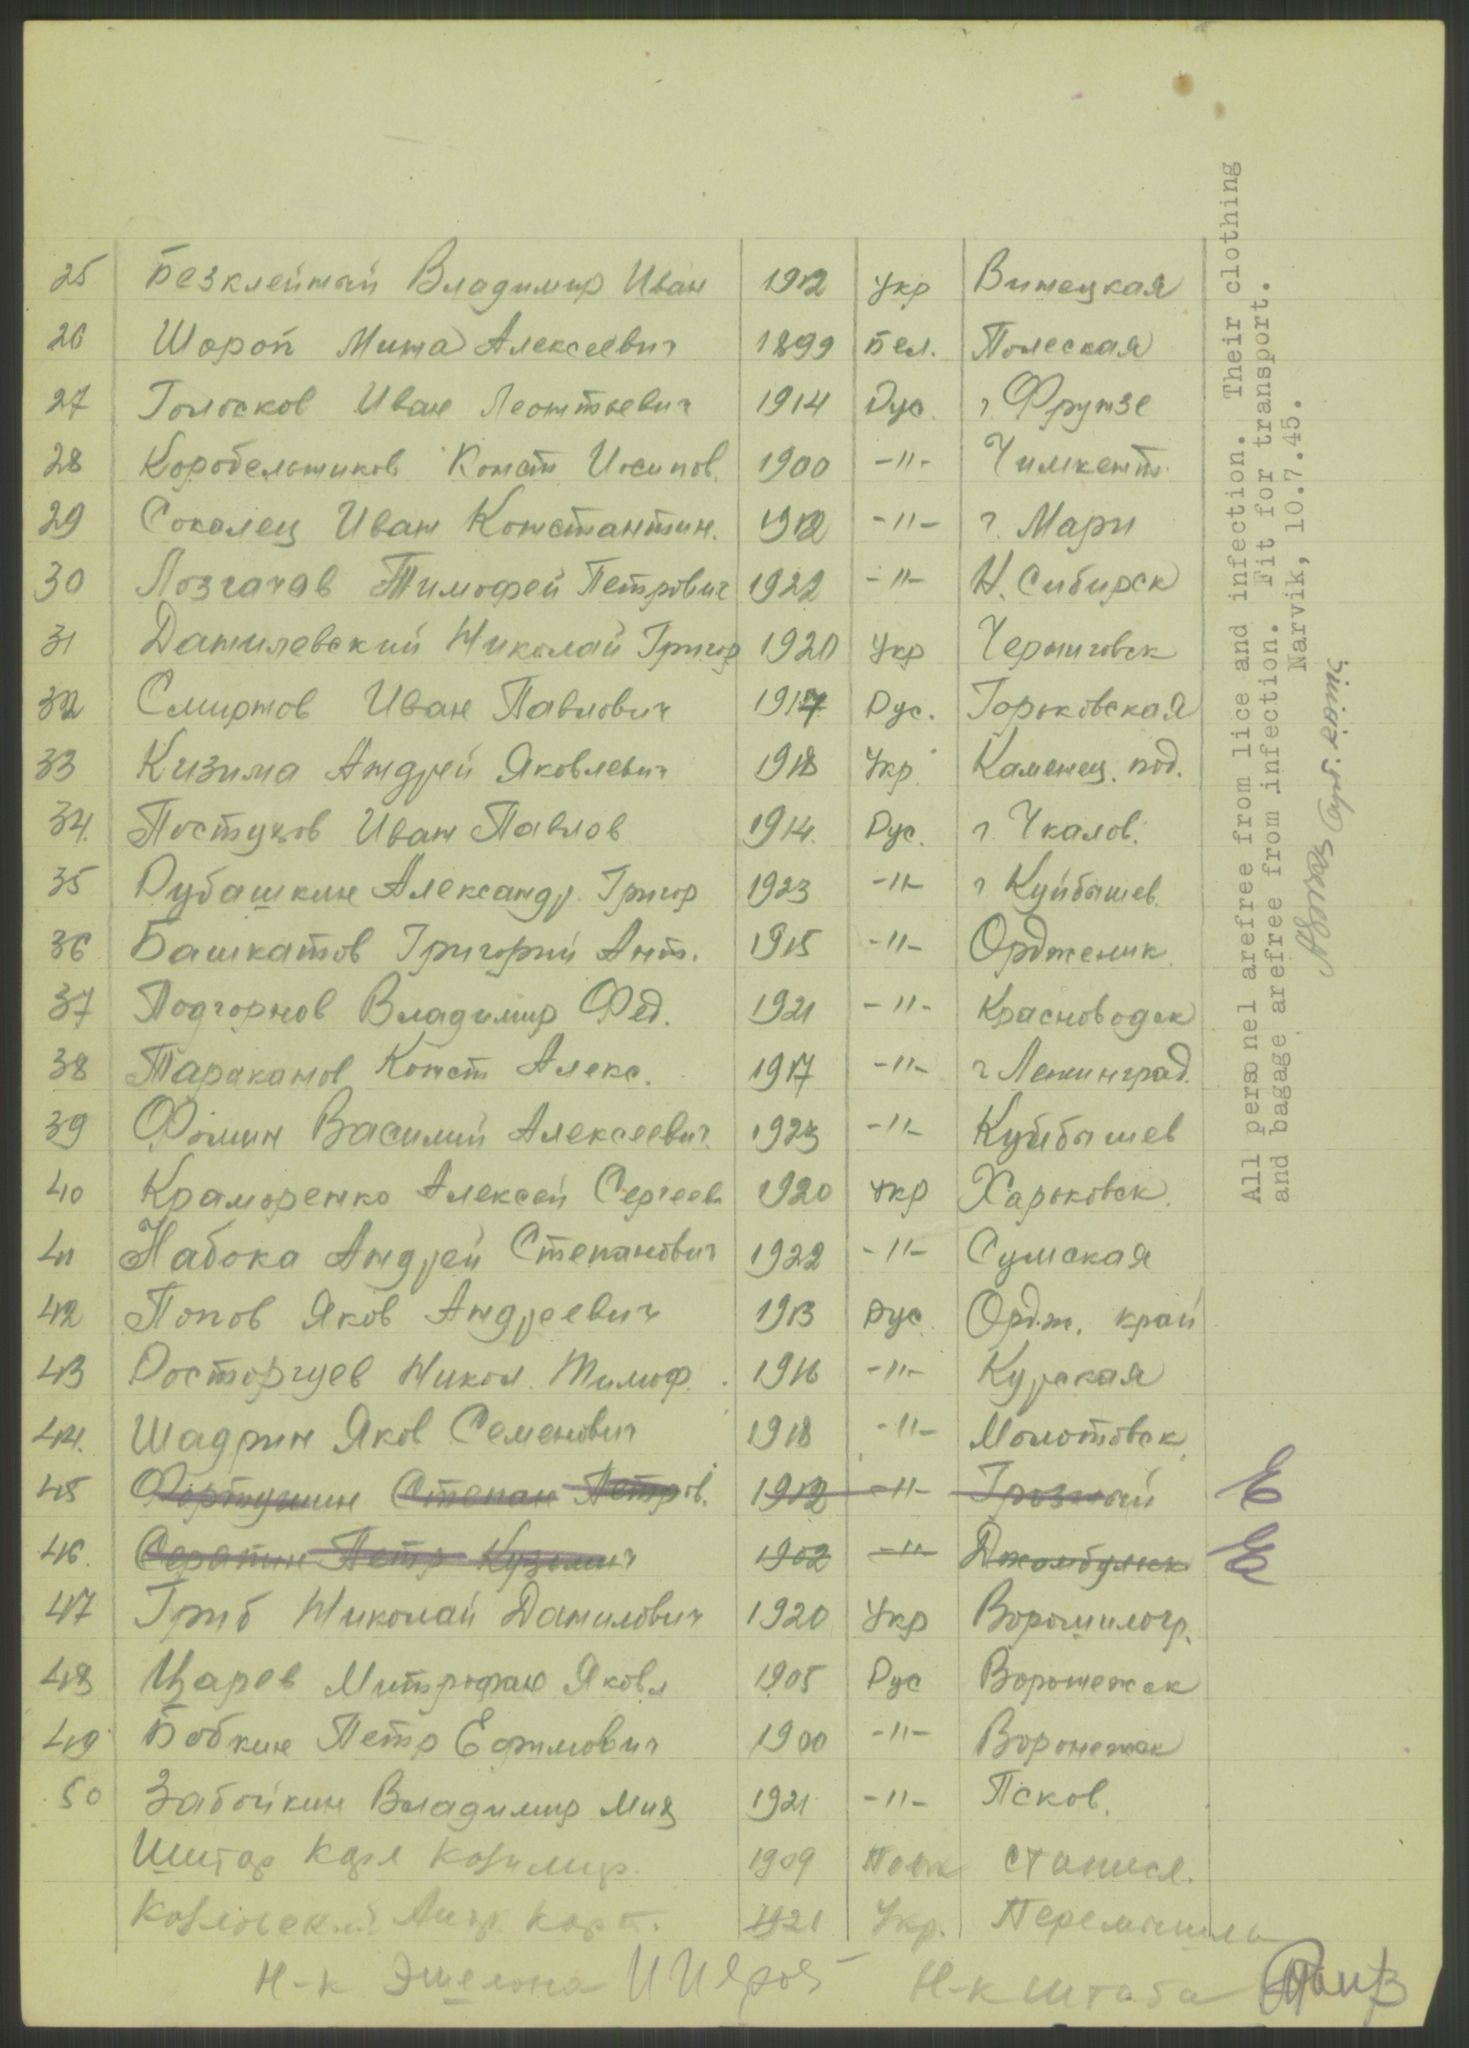 25 Безклейный Владимир Иван 1912 Укр Винецкая
26 Шороп Миша Алексеевич 1899 Бел. Полеская
27 Голосков Иван Леонтьевич 1914 Рус. г Фрунзе
28 Коробельников Конст Иосипов. 1900 -"- Чимкент.
29 Соколец Иван Константин. 1912 -"- г. Мари
30 Лозгачов Тимофей Петрович 1922 -"- Н. Сибирск
31 Данилевский Николай Григор 1920 Укр Черниговск
32 Смирнов Иван Павлович 1917 Рус. Горьковская
33 Кизима Андрей Яковлевич 1918 Укр. Каменец. под.
34. Постухов Иван Павлов 1914. Рус. г. Чкалов.
35 Рубашкин Александр. Григор 1923 -"- г Куйбышев.
36 Башкатов Григорий Ант. 1915 -"- Орджоник.
37 Подгорнов Владимир Фед. 1921 -"- Красноводск
38 Тараканов Конст Алекс. 1917 -"- г Ленинград.
39 Фомин Василий Алексеевич. 1923 -"- Куйбышев
40 Краморенко Алексей Сергеев 1920 Укр Харьковск.
41 Набока Андрей Степанович 1922 -"- Сумская
42 Попов Яков Андреевич 1913 Рус. Ордж. край
43 Росторгуев Никол. Тимоф. 1916 -"- Курская
44. Шадрин Яков Семенович 1918 -"- Молотовск
45 Фортунин Степан Петров. 1912 -"- Грозный E
46. Серапин Петр Кузьмич 1902 -"- Джамбулск E
47 Гриб Николай Данилович 1920 Укр Ворошилогр.
48 Царев Митрофан Яковл 1905 Рус Воронежск
49 Бобкин Петр Ефимович 1900 -"- Воронежск
50 Забойкин Владимир Мих 1921 -"- Псков.
Шитар Карл Казимир. 1909 Поляк Станисл.
Козловский Андр. Карп. 1921 Укр. Перемышль
Н-к Эшелона Н-к штаба
All personnel arefree from lice and infection. Their clothing
and bagage arefree from infection. Fit for transport.
Narvik, 10.7.45.